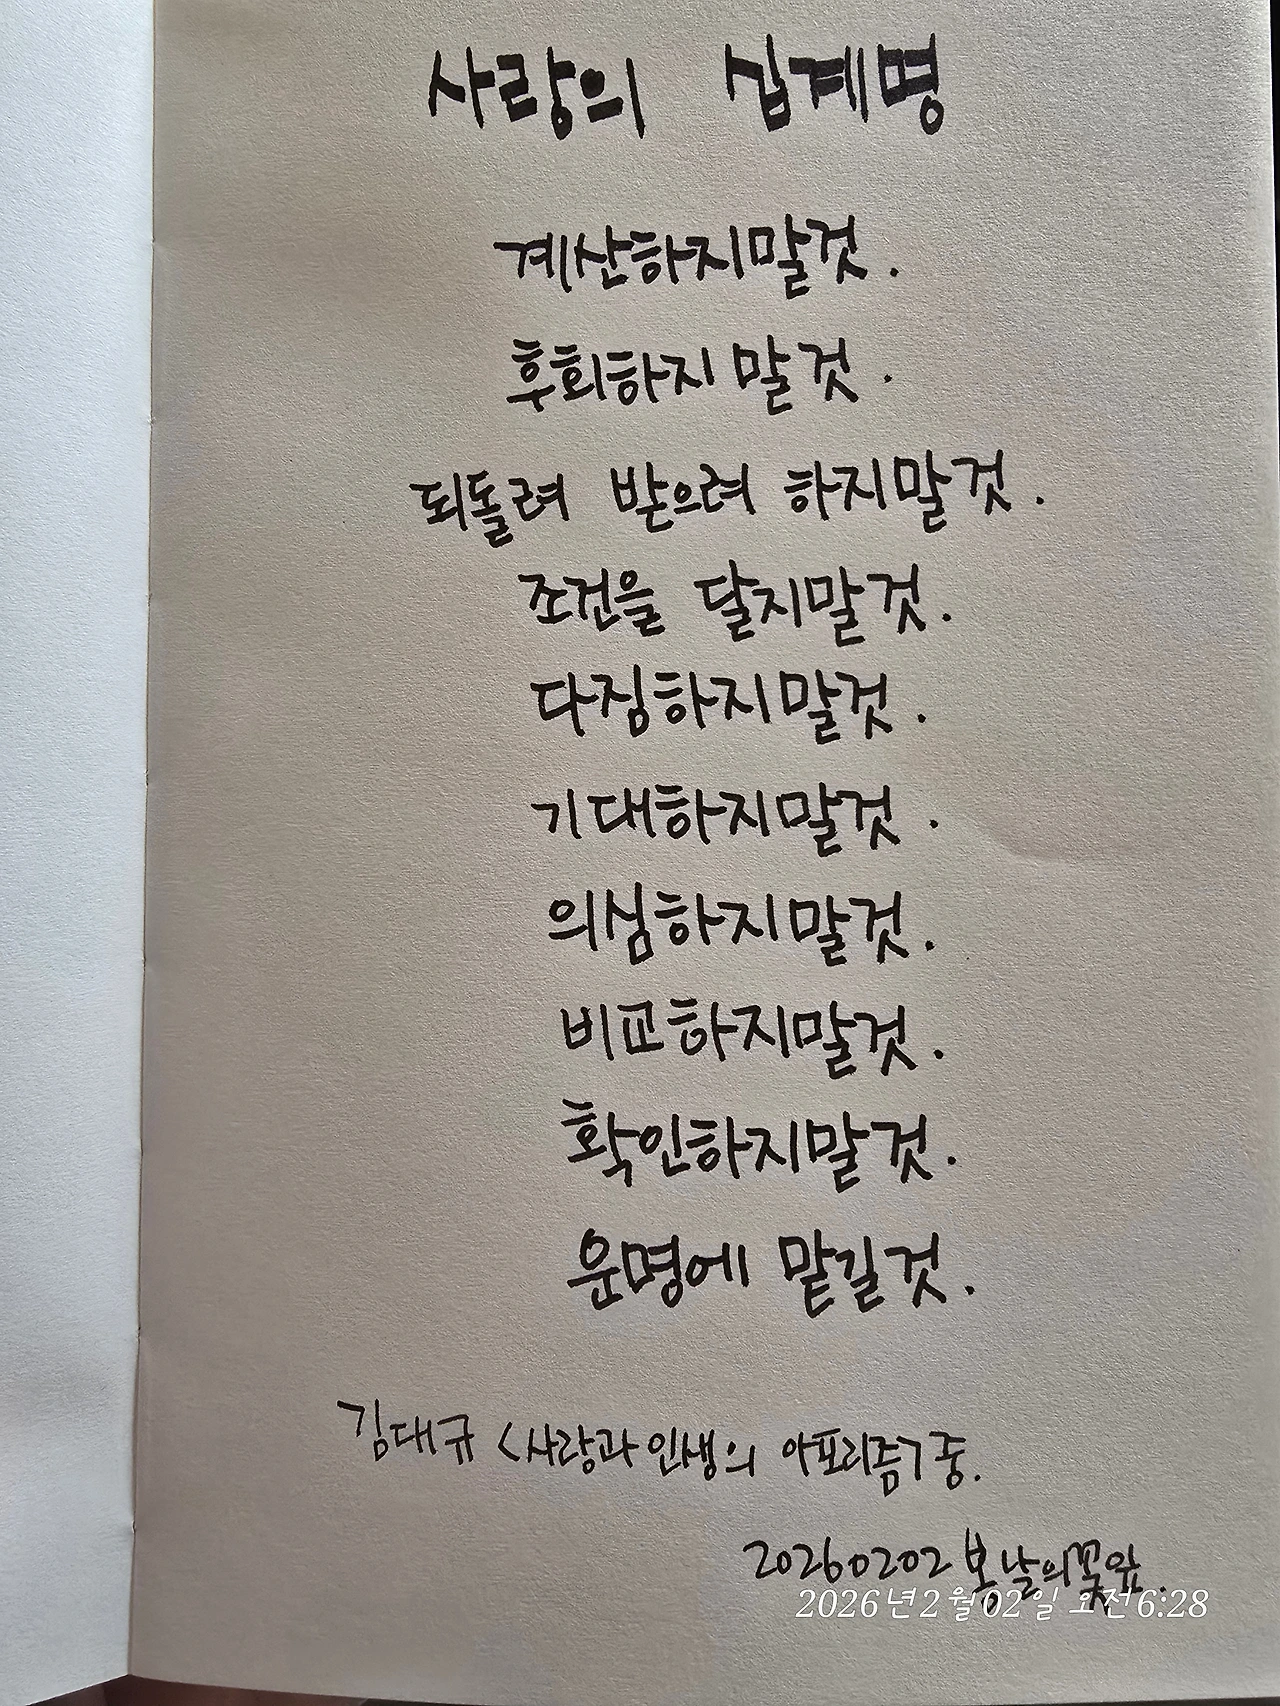 사랑의 십계명
계산하지말것.
후회하지 말것.
되돌려 받으려 하지말것.
조건을 달지말것.
다짐하지말것.
기대하지말것.
의심하지말것.
비교하지말것.
확인하지말것.
운명에 맡길것.
김대규 <사랑과 인생의 아포리즘> 중.
20260202 봄날의꽃잎.
2026년 2월 02일 오전 6:28